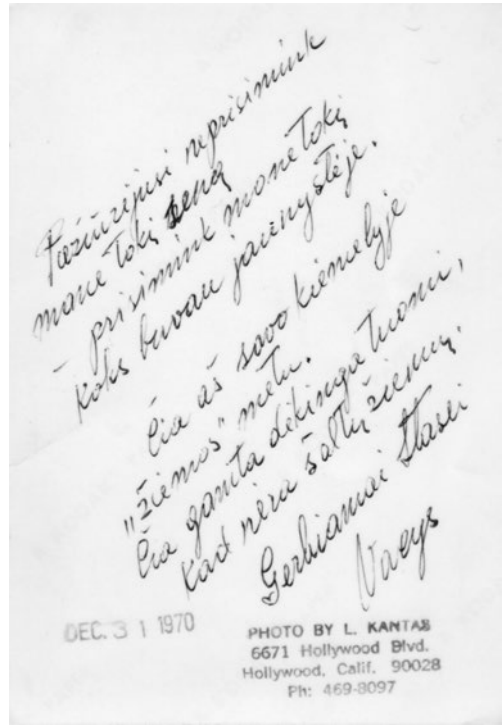 Pažiūrėjusi neprisimink
mane tokį seną
– prisimink mane tokį
koks buvau jaunystėje.
Čia aš savo kiemelyje
"žiemos" metu.
Čia gamta dėkinga tuomi,
kad nėra šaltų žiemų.
Gerbiamai Stasei
Vacys
DEC. 31 1970
PHOTO BY L. KANTAS
6671 Hollywood Blvd.
Hollywood, Calif. 90028
Ph: 469-8097